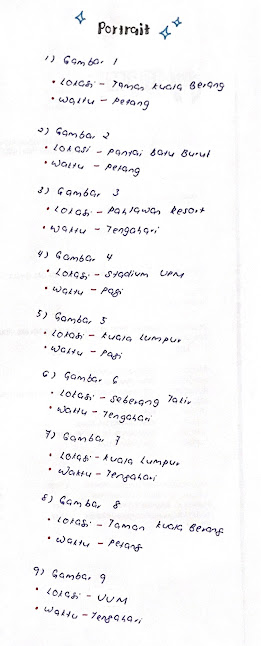 Portrait
1) Gambar 1
• Lokasi - Taman Kuala Berang
• Waktu - Petang
2) Gambar 2
• Lokasi - Pantai Batu Burul
• Waktu - Petang
3) Gambar 3
• Lokasi - Pahlawan Resort
• Waktu - Tengahari
4) Gambar 4
• Lokasi - Stadium UPM
• Waktu - Pagi
5) Gambar 5
• Lokasi - Kuala Lumpur
• Waktu - Pagi
6) Gambar 6
• Lokasi - Seberang Takir
• Waktu - Tengahari
7) Gambar 7
• Lokasi - Kuala Lumpur
• Waktu - Tengahari
8) Gambar 8
• Lokasi - Taman Kuala Berang
• Waktu - Petang
9) Gambar 9
• Lokasi - UUM
• Waktu - Tengahari